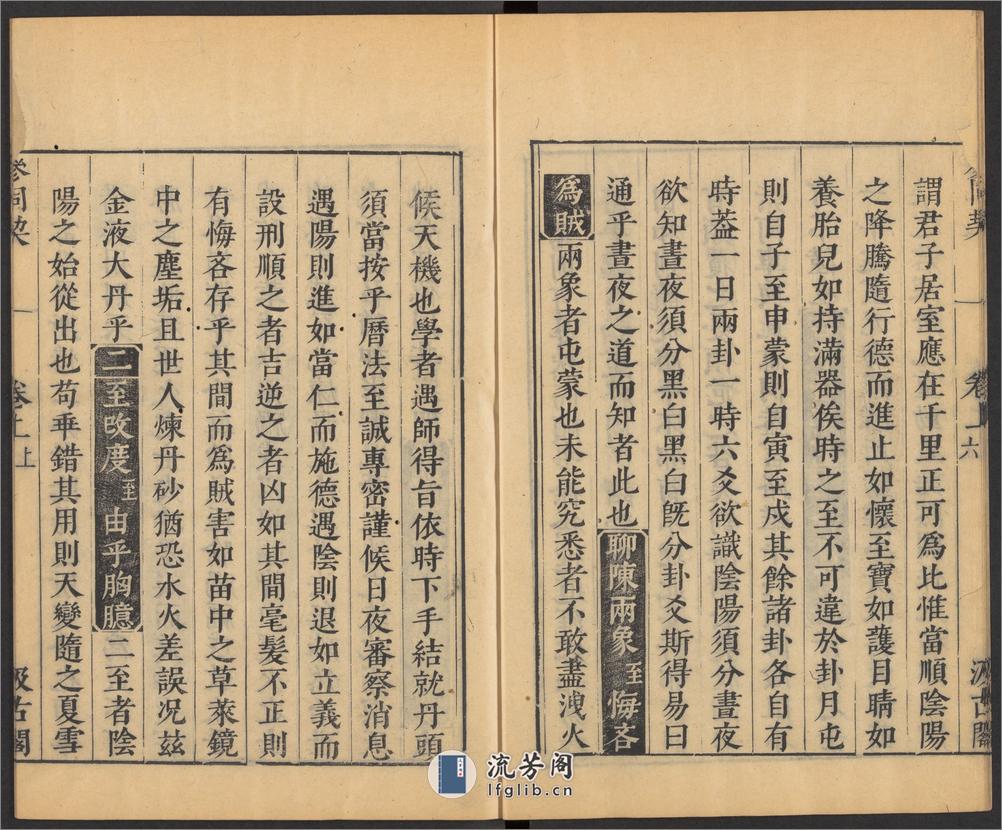 謂君子居室應在千里正可為比惟當順陰陽
之降騰隨行德而進止如懷至寶如護目睛如
養胎兒如持滿器俟時之至不可違於卦月屯
則自子至申蒙則自寅至戍其餘諸卦各自有
時葢一日兩卦一時六爻欲識陰陽須分晝夜
欲知晝夜須分黑白黑白旣分卦爻斯得易曰
通乎晝夜之道而知者此也聊陳兩象至悔吝
為賊兩象者屯蒙也未能究悉者不敢盡洩火
卷上 六
汲古閣
候天機也學者遇師得旨依時下手結就丹頭
須當按乎曆法至誠專密謹候日夜審察消息
遇陽則進如當仁而施德遇陰則退如立義而
設刑順之者吉逆之者凶如其間毫髮不正則
有悔吝存乎其間而為賊害如苗中之草萊鏡
中之塵垢且世人煉丹砂猶恐水火差誤况茲
金液大丹乎二至改度至由乎胸臆二至者陰
陽之始從出也苟垂錯其用則天變隨之夏雪
參同契
卷上上
汲古閣
流芳阁
lfglib.cn